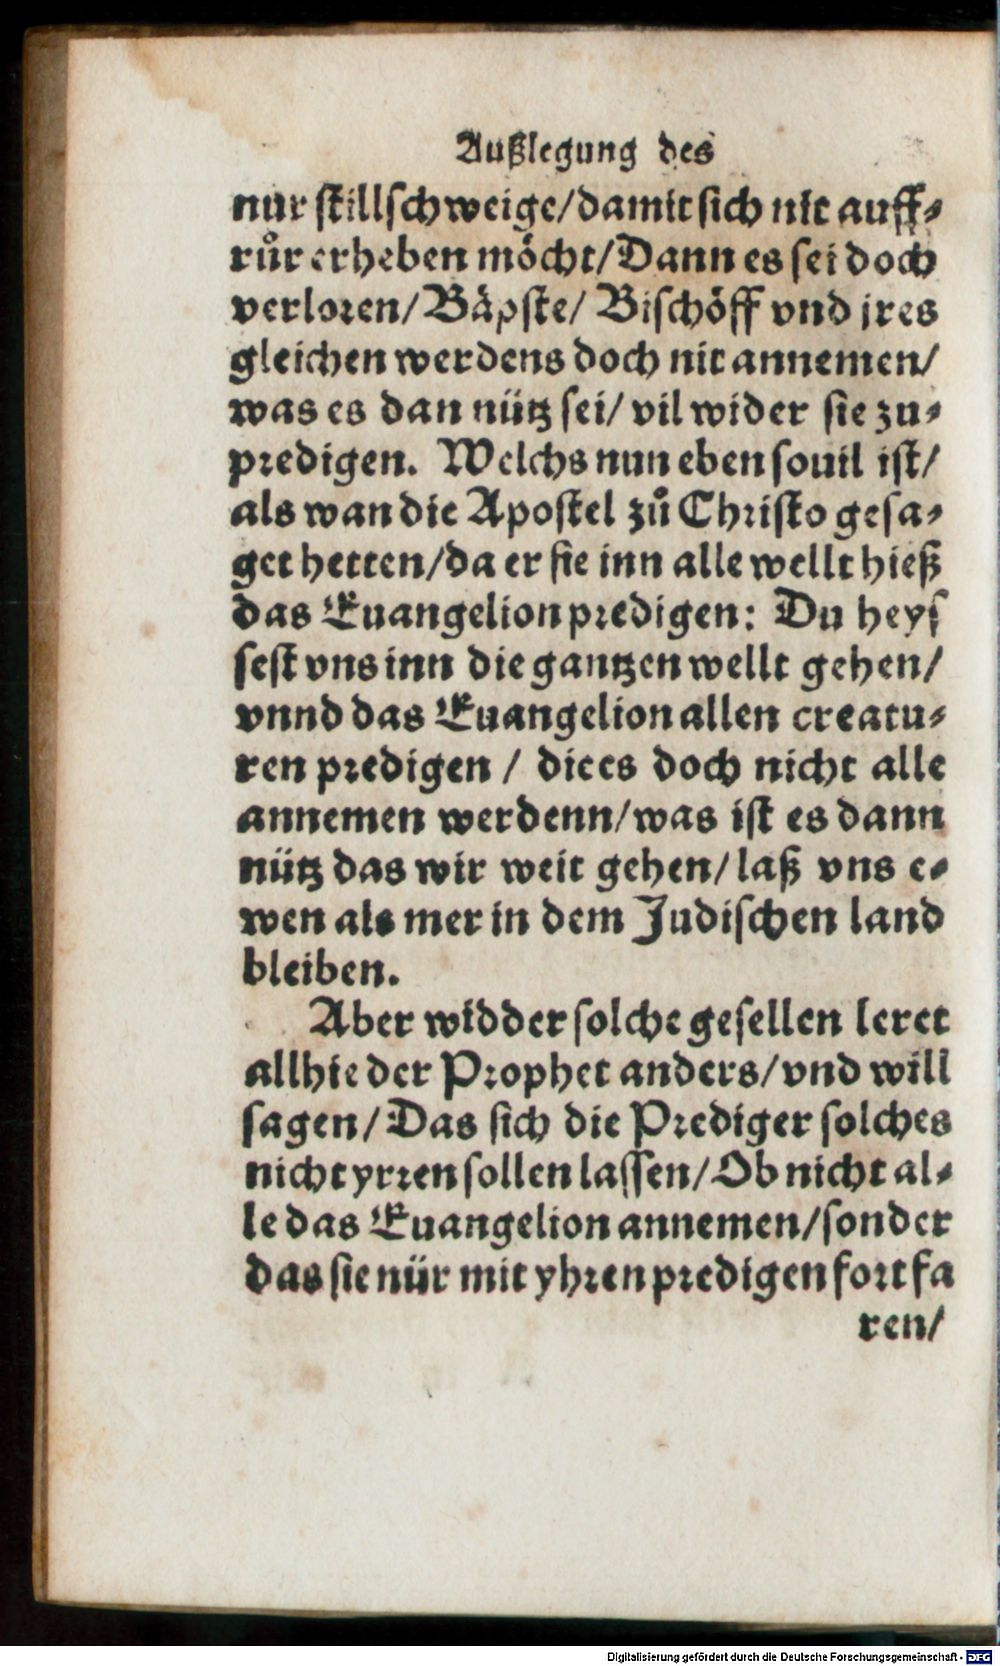 Außlegung des
nur stillschweige/damit sich nit auff⸗
růr erheben möcht/Dann es sei doch
verloren/Bäpste/ Bischöff vnd jres
gleichen werdens doch nit annemen/
was es dan nütz sei/ vil wider sie zu⸗
predigen. Welchs nun eben souil ist/
als wan die Apostel zů Christo gesa⸗
get hetten/da er sie inn alle wellt hieß
das Euangelion predigen: Du heys
sest vns inn die gantzen wellt gehen/
vnnd das Euangelion allen creatu⸗
ren predigen / die es doch nicht alle
annemen werdenn/was ist es dann
nütz das wir weit gehen/laß vns e⸗
wen als mer in dem Judischen land
bleiben.
Aber widder solche gesellen leret
allhie der Prophet anders/vnd will
sagen/Das sich die Prediger solches
nicht yrren sollen lassen/Ob nicht al⸗
le das Euangelion annemen/sonder
das sie nür mit yhren predigen fort fa
ren/
Digitalisierung gefördert durch die Deutsche Forschungsgemeinschaft - DFG